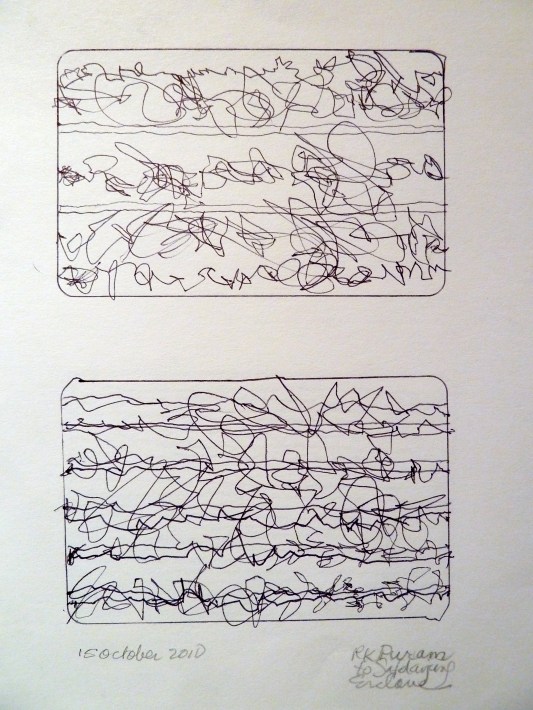 15 October 2010
RK Puram
to Safdarjung
Enclave